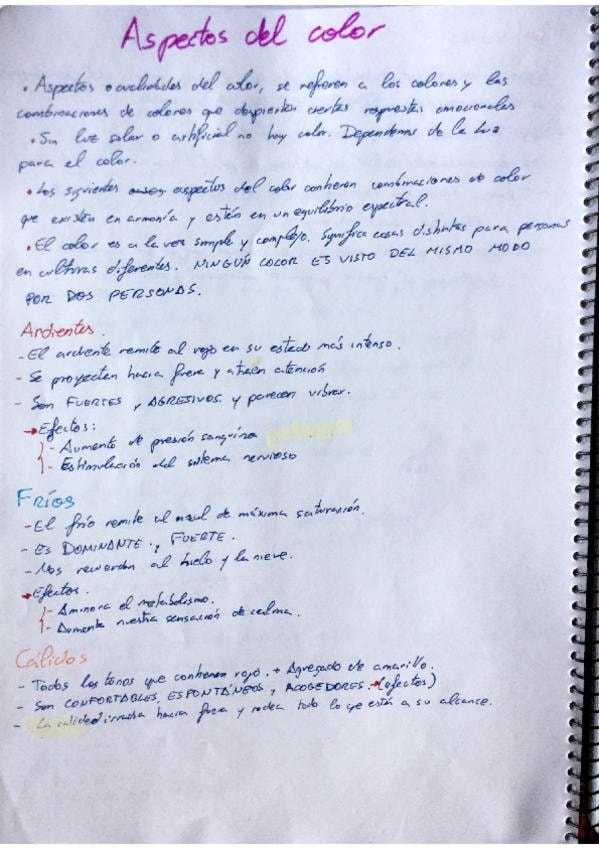 Aspectos del color
• Aspectos o cualidades del color, se refieren a los colores y las
combinaciones de colores que despiertan ciertas respuestas emocionales
• Sin luz solar o artificial no hay color. Dependemos de la luz
para el color.
• Los siguientes aspectos del color contienen combinaciones de color
que existen en armonía y están en un equilibrio espectral.
• El color es a la vez simple y complejo. Significa cosas distintas para personas
en culturas diferentes. NINGÚN COLOR ES VISTO DEL MISMO MODO
POR DOS PERSONAS.
Ardientes.
- El ardiente remite al rojo en su estado más intenso.
- Se proyectan hacia fuera y atraen atención
- Son FUERTES y AGRESIVOS y parecen vibrar.
→ Efectos:
- Aumento de presión sanguínea
- Estimulación del sistema nervioso
FRÍOS
- El frío remite al azul de máxima saturación.
- ES DOMINANTE y FUERTE.
- Nos recuerdan al hielo y la nieve.
→ Efectos.
- Aminora el metabolismo.
- Aumenta nuestra sensación de calma.
Cálidos
- Todos los tonos que contienen rojo. + Agregado de amarillo.
- Son CONFORTABLES, ESPONTÁNEOS y ACOGEDORES. → (efectos)
- La calidez irradia hacia fuera y rodea todo lo que está a su alcance.